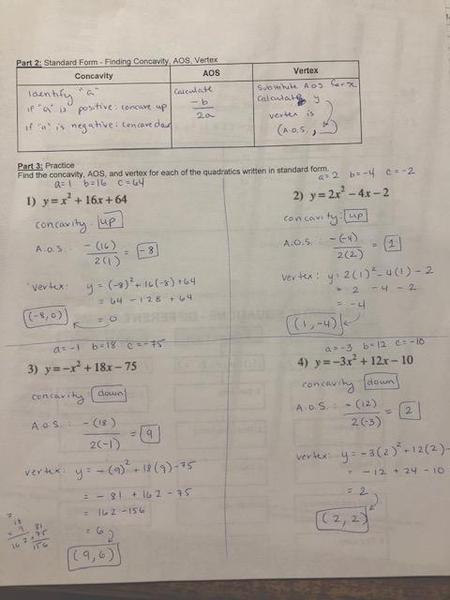 Part 2: Standard Form - Finding Concavity, AOS, Vertex
Concavity
AOS
Vertex
Identify "a"
if "a" is positive: concave up
if "a" is negative: concave down
Calculate
-b
2a
Substitute AOS for x
Calculate y
vertex is
(A.O.S., __)
Part 3: Practice
Find the concavity, AOS, and vertex for each of the quadratics written in standard form.
a=1 b=16 c=64
1) y = x² + 16x + 64
concavity: up
A.O.S.: -(16)
2(1)
= -8
Vertex: y = (-8)² + 16(-8) + 64
= 64 - 128 + 64
= 0
(-8,0)
a=2 b=-4 c=-2
2) y = 2x² - 4x - 2
concavity: up
A.O.S.: -(-4)
2(2)
= 1
Vertex: y = 2(1)² - 4(1) - 2
= 2 - 4 - 2
= -4
(1,-4)
a=-1 b=18 c=-75
3) y = -x² + 18x - 75
concavity: down
A.O.S.: -(18)
2(-1)
= 9
vertex: y = -(9)² + 18(9) - 75
= -81 + 162 - 75
= 162 - 156
= 6
(9,6)
18
9
162
81
+75
156
a=-3 b=12 c=-10
4) y = -3x² + 12x - 10
concavity: down
A.O.S.: -(12)
2(-3)
= 2
vertex: y = -3(2)² + 12(2) -
= -12 + 24 - 10
= 2
(2,2)